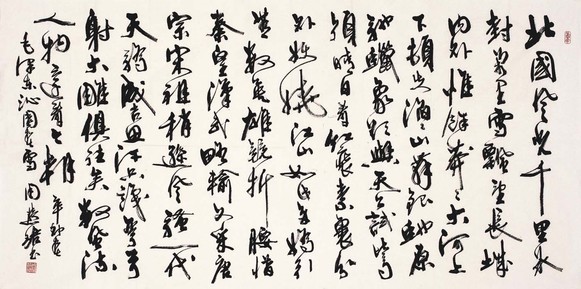 北國風光千里冰
封萬里雪飄望長城
内外惟餘莽莽大河上
下頓失滔滔山舞銀蛇原
馳蠟象欲與天公試比高
須晴日看紅裝素裹分
外妖嬈江山如此多嬌引
無數英雄競折腰惜
秦皇漢武略輸文采唐
宗宋祖稍遜風騷一代
天驕成吉思汗只識彎弓
射大雕俱往矣數風流
人物還看今朝
毛澤東沁園春雪 周慧珺書